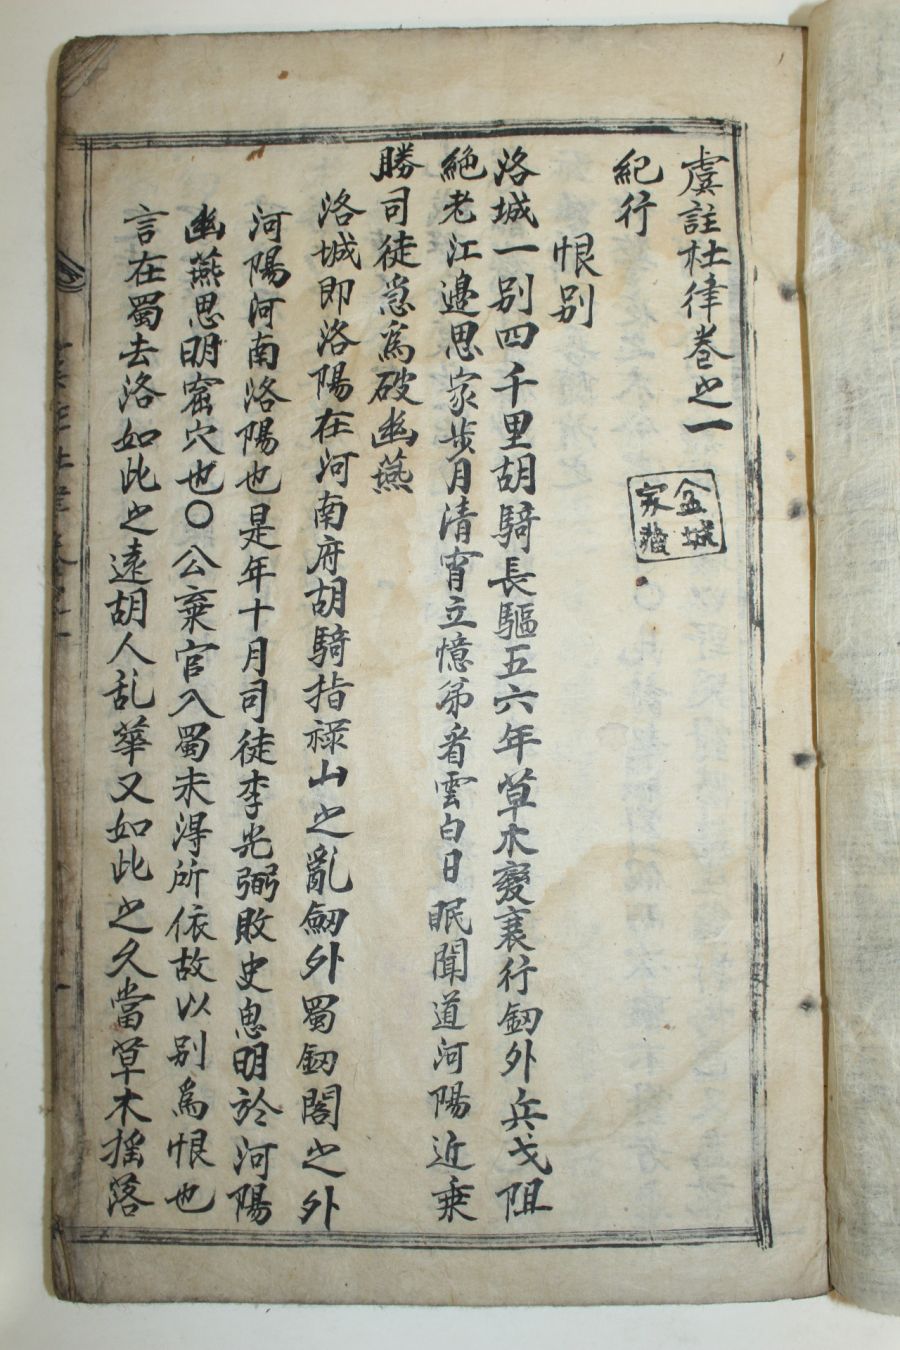 虞註杜律卷之一
金城
家藏
紀行
恨别
洛城一别四千里胡騎長驅五六年草木變衰行釼外兵戈阻
絶老江邉思家步月清宵立憶弟看雲白日眠聞道河陽近乗
勝司徒急爲破幽燕
洛城即洛陽在河南府胡騎指祿山之亂劒外蜀釼閣之外
河陽河南洛陽也是年十月司徒李光弼敗史思明於河陽
幽燕思明窟穴也〇公棄官入蜀未淂所依故以别爲恨也
言在蜀去洛如此之遠胡人乱華又如此之久當草木揺落